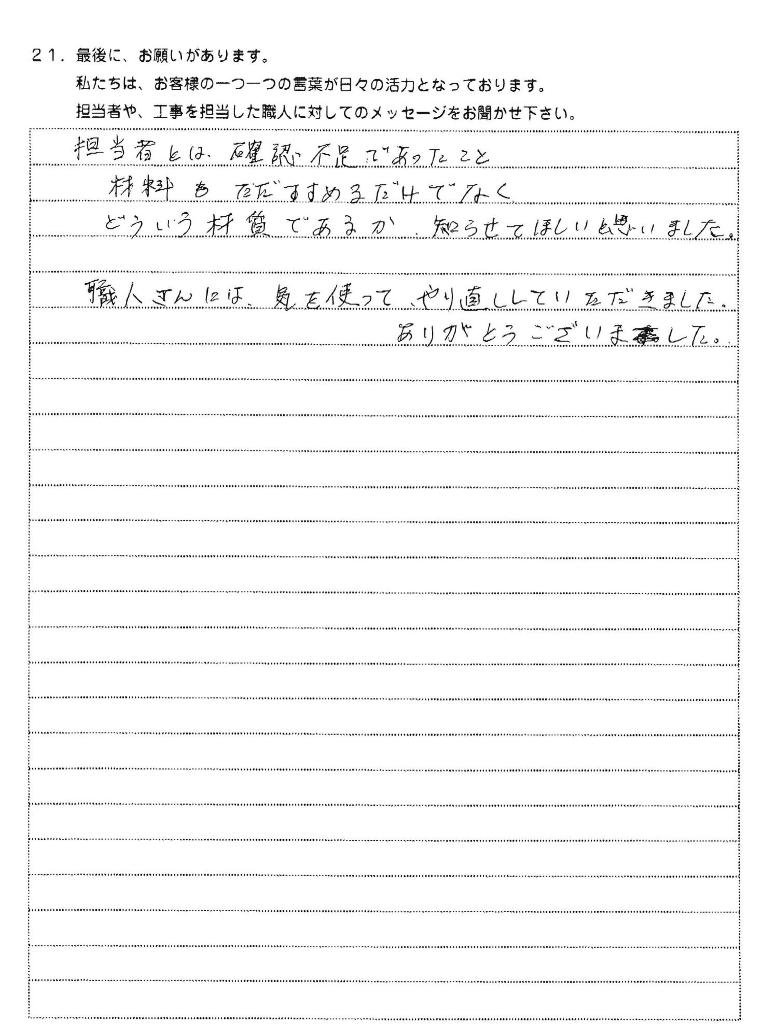 21. 最後に、お願いがあります。
私たちは、お客様の一つ一つの言葉が日々の活力となっております。
担当者や、工事を担当した職人に対してのメッセージをお聞かせ下さい。
担当者とは、確認不足であったこと
材料もただすすめるだけでなく
どういう材質であるか、知らせてほしいと思いました。
職人さんには、気を使って、やり直ししていただきました。
ありがとうございました。